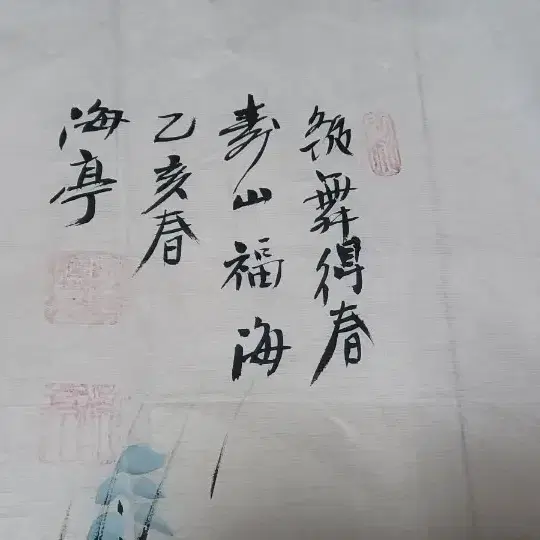 舞得春
壽山福海
乙亥春
海亭